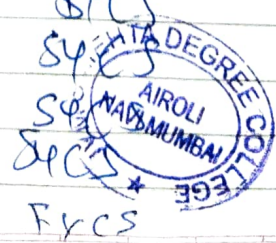 SYCS
SYCS
SYCS
FYCS
MEHTA DEGREE COLLEGE
AIROLI
NAVI MUMBAI